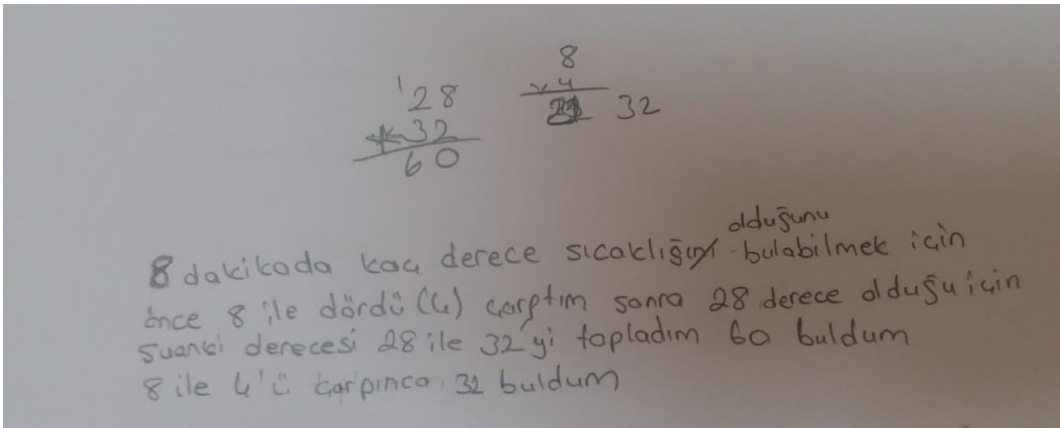 8
x 4
32
1
28
+ 32
60
olduğunu
8 dakikada kaç derece sıcaklığın bulabilmek için
önce 8 ile dördü (4) çarptım sonra 28 derece olduğu için
şuanki derecesi 28 ile 32 yi topladım 60 buldum
8 ile 4'ü çarpınca 32 buldum